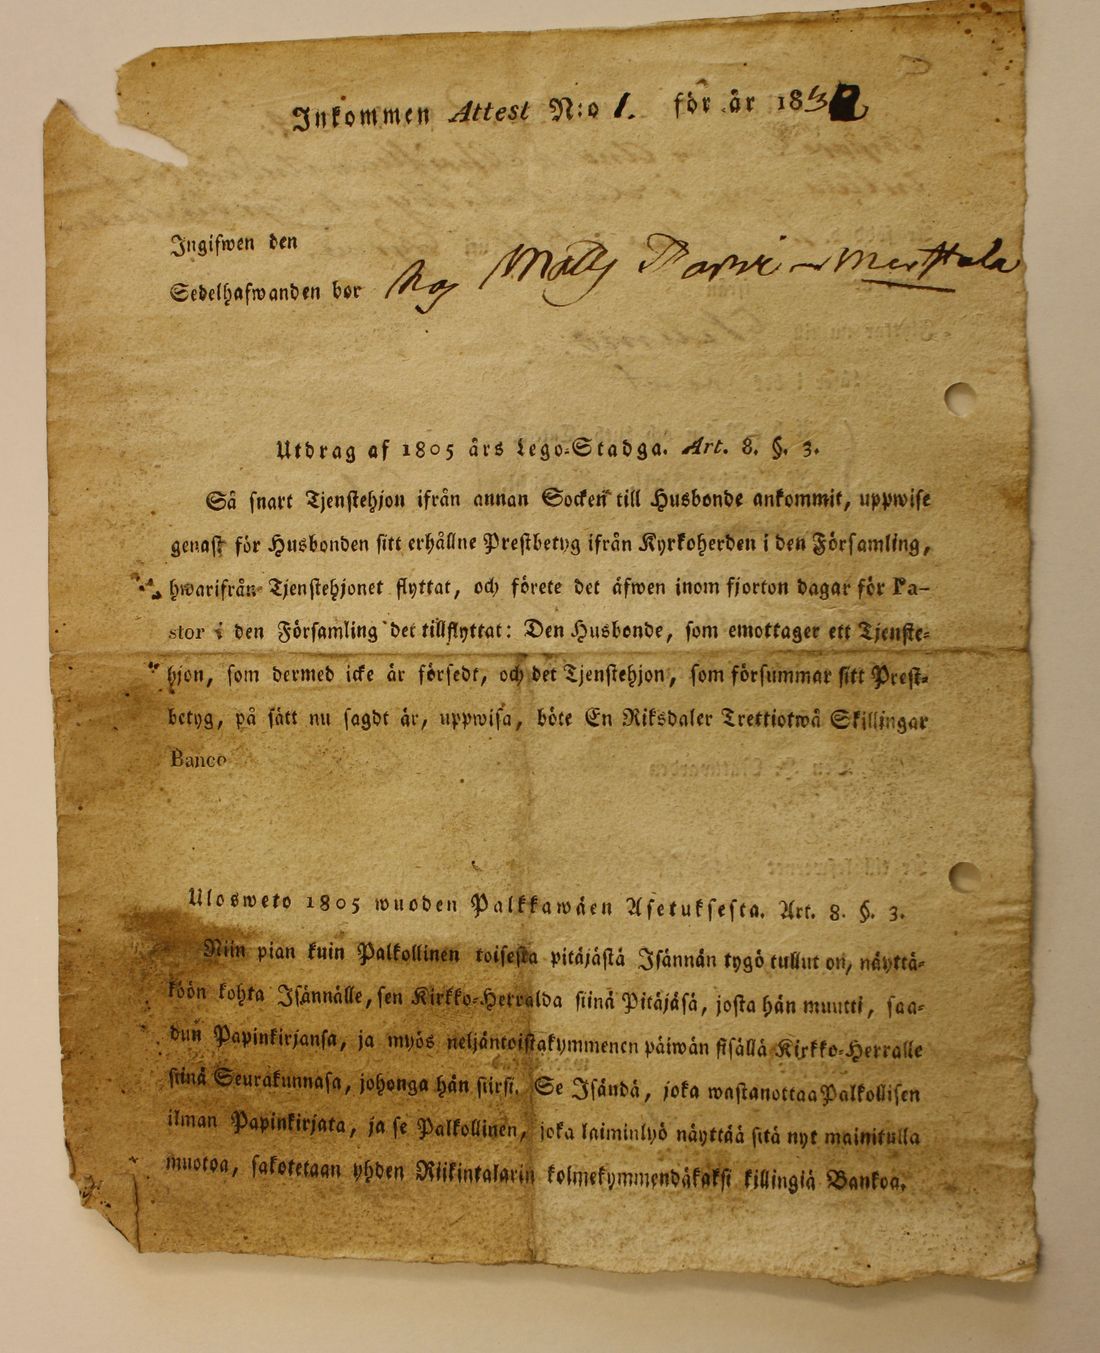 Inkommen Attest N:o 1. för år 18
Ingifwen den
Sedelhafwanden bor hos Matts
Utdrag af 1805 års Lego-Stadga. Art. 8. §. 3.
Så snart Tjenstehjon ifrån annan Socken till Husbonde ankommit, uppwise
genast för Husbonden sitt erhållne Prestbetyg ifrån Kyrkoherden i den Församling,
hwarifrån Tjenstehjonet flyttat, och förete det äfwen inom fjorton dagar för Pa-
stor i den Församling det tillflyttat: Den Husbonde, som emottager ett Tjenste-
hjon, som dermed icke är försedt, och det Tjenstehjon, som försummar sitt Prest-
betyg, på sätt nu sagdt är, uppwisa, böte En Riksdaler Trettiotwå Skillingar
Banco
Ulosweto 1805 wuoden Palkkawäen Asetuksesta. Art. 8. §. 3.
Niin pian kuin Palkollinen toisesta pitäjästä Isännän tygö tullut on, näyttä-
köön kohta Isännälle, sen Kirkko-Herralda siinä Pitäjäsä, josta hän muutti, saa-
dun Papinkirjansa, ja myös neljäntoistakymmenen päiwän sisällä Kirkko-Herralle
siinä Seurakunnasa, johonga hän siirsi. Se Isändä, joka wastanottaa Palkollisen
ilman Papinkirjata, ja se Palkollinen, joka laiminlyö näyttää sitä nyt mainitulla
muotoa, sakotetaan yhden Riikintalarin kolmekymmendäkaksi killingiä Bankoa.